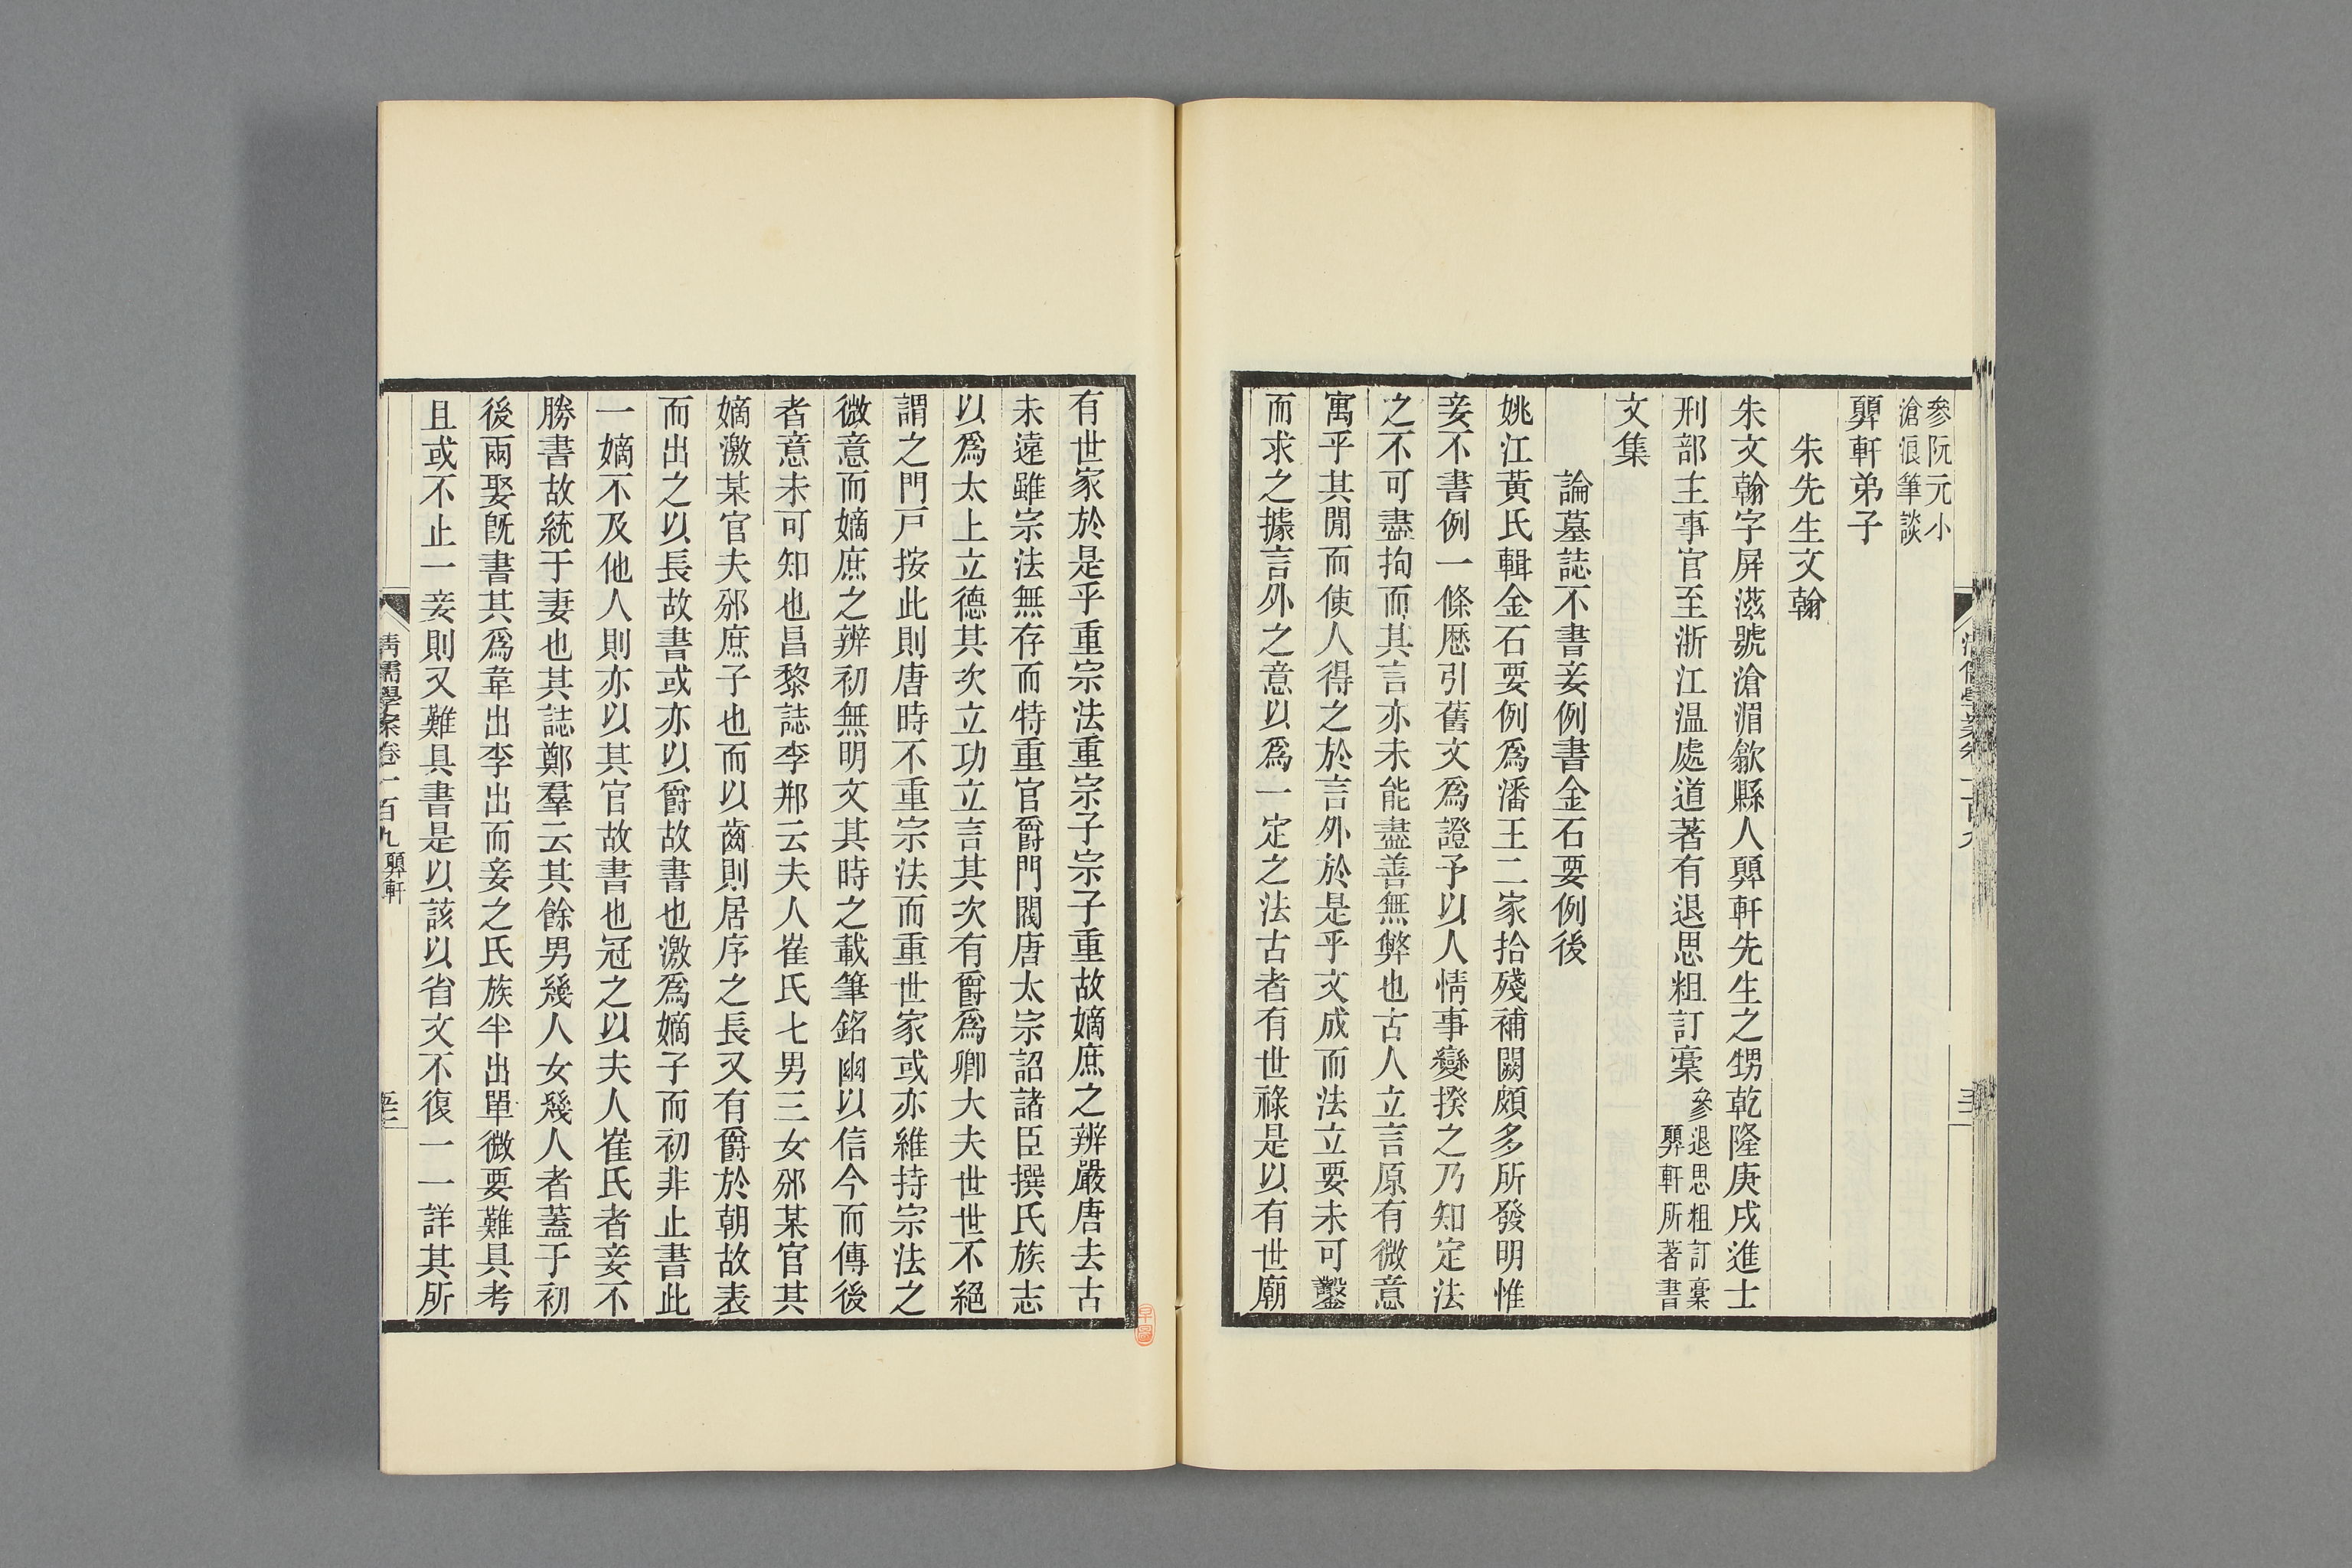 參阮元小
滄浪筆談
顨軒弟子
朱先生文翰
朱文翰字屏滋號滄湄歙縣人顨軒先生之甥乾隆庚戌進士
刑部主事官至浙江温處道著有退思粗訂稾
參退思粗訂稾
顨軒所著書
文集
論墓誌不書妾例書金石要例後
姚江黃氏輯金石要例爲潘王二家拾殘補闕頗多所發明惟
妾不書例一條歷引舊文爲證予以人情事變揆之乃知定法
之不可盡拘而其言亦未能盡善無弊也古人立言原有微意
寓乎其閒而使人得之於言外於是乎文成而法立要未可鑿
而求之據言外之意以爲一定之法古者有世祿是以有世廟
有世家於是乎重宗法重宗子宗子重故嫡庶之辨嚴唐去古
未遠雖宗法無存而特重官爵門閥唐太宗詔諸臣撰氏族志
以爲太上立德其次立功立言其次有爵爲卿大夫世世不絕
謂之門戸按此則唐時不重宗法而重世家或亦維持宗法之
微意而嫡庶之辨初無明文其時之載筆銘幽以信今而傳後
者意未可知也昌黎誌李邢云夫人崔氏七男三女邠某官其
嫡激某官夫邠庶子也而以齒則居序之長又有爵於朝故表
而出之以長故書或亦以爵故書也激爲嫡子而初非止書此
一嫡不及他人則亦以其官故書也冠之以夫人崔氏者妾不
勝書故統于妻也其誌鄭羣云其餘男幾人女幾人者蓋于初
後兩娶旣書其爲韋出李出而妾之氏族半出單微要難具考
且或不止一妾則又難具書是以該以省文不復一一詳其所
清儒學案卷二百九 顨軒